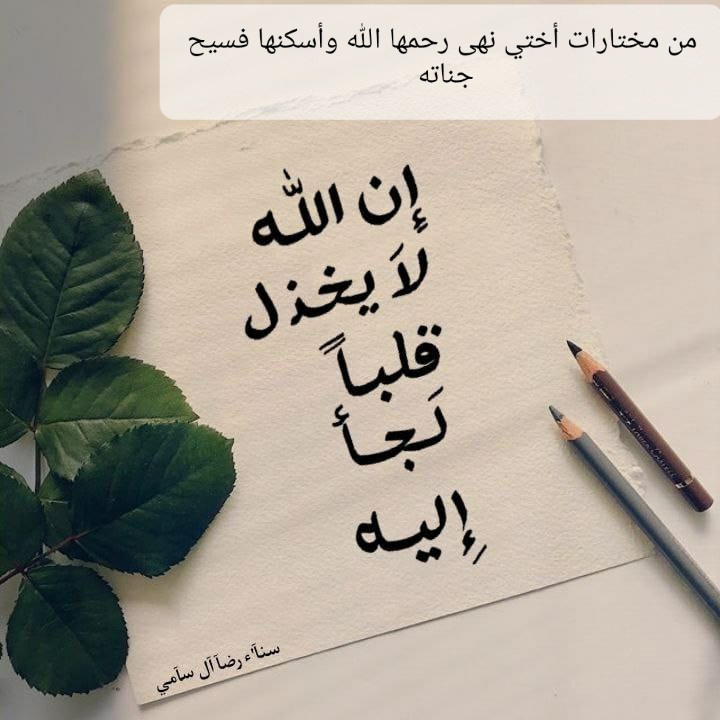 من مختارات أختي نهى رحمها الله وأسكنها فسيح
جناته
إن الله
لاَ يخذل
قلباً
لَجأ
إِليه
سناَء رضاَ آل ساَمي